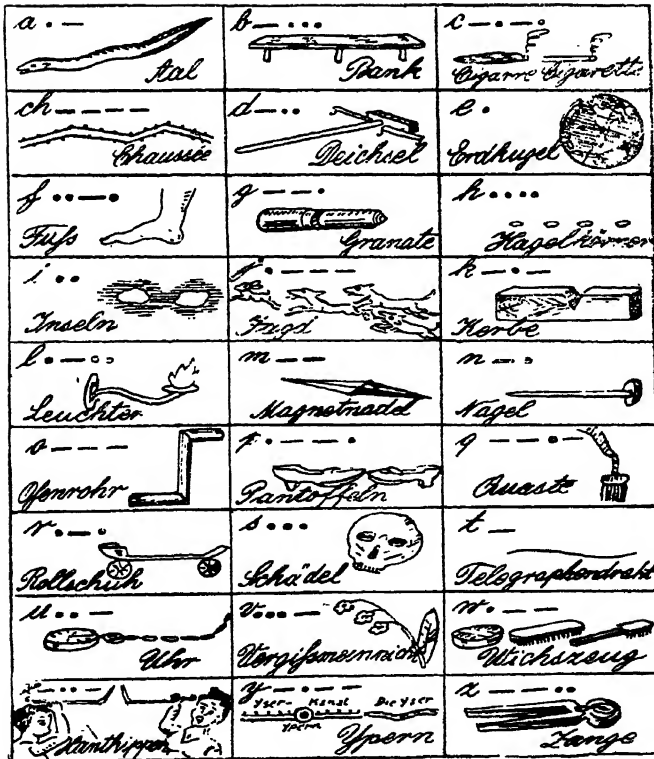 a · —
Aal
b — · · ·
Bank
c — · — ·
Cigarre Cigarette
ch — — — —
Chaussée
d — · ·
Deichsel
e ·
Erdkugel
f · · — ·
Fuss
g — — ·
Granate
h · · · ·
Hagelkörner
i · ·
Inseln
j · — — —
Jagd
k — · —
Kerbe
l · — · ·
Leuchter
m — —
Magnetnadel
n — ·
Nagel
o — — —
Ofenrohr
p · — — ·
Pantoffeln
q — — · —
Quaste
r · — ·
Rollschuh
s · · ·
Schädel
t —
Telegraphendraht
u · · —
Uhr
v · · · —
Vergissmeinnicht
w · — —
Wichszeug
x — · · —
Xanthippen
y — · — —
Yser- Kanal Die Yser
Ypern
Ypern
z — — · ·
Zange